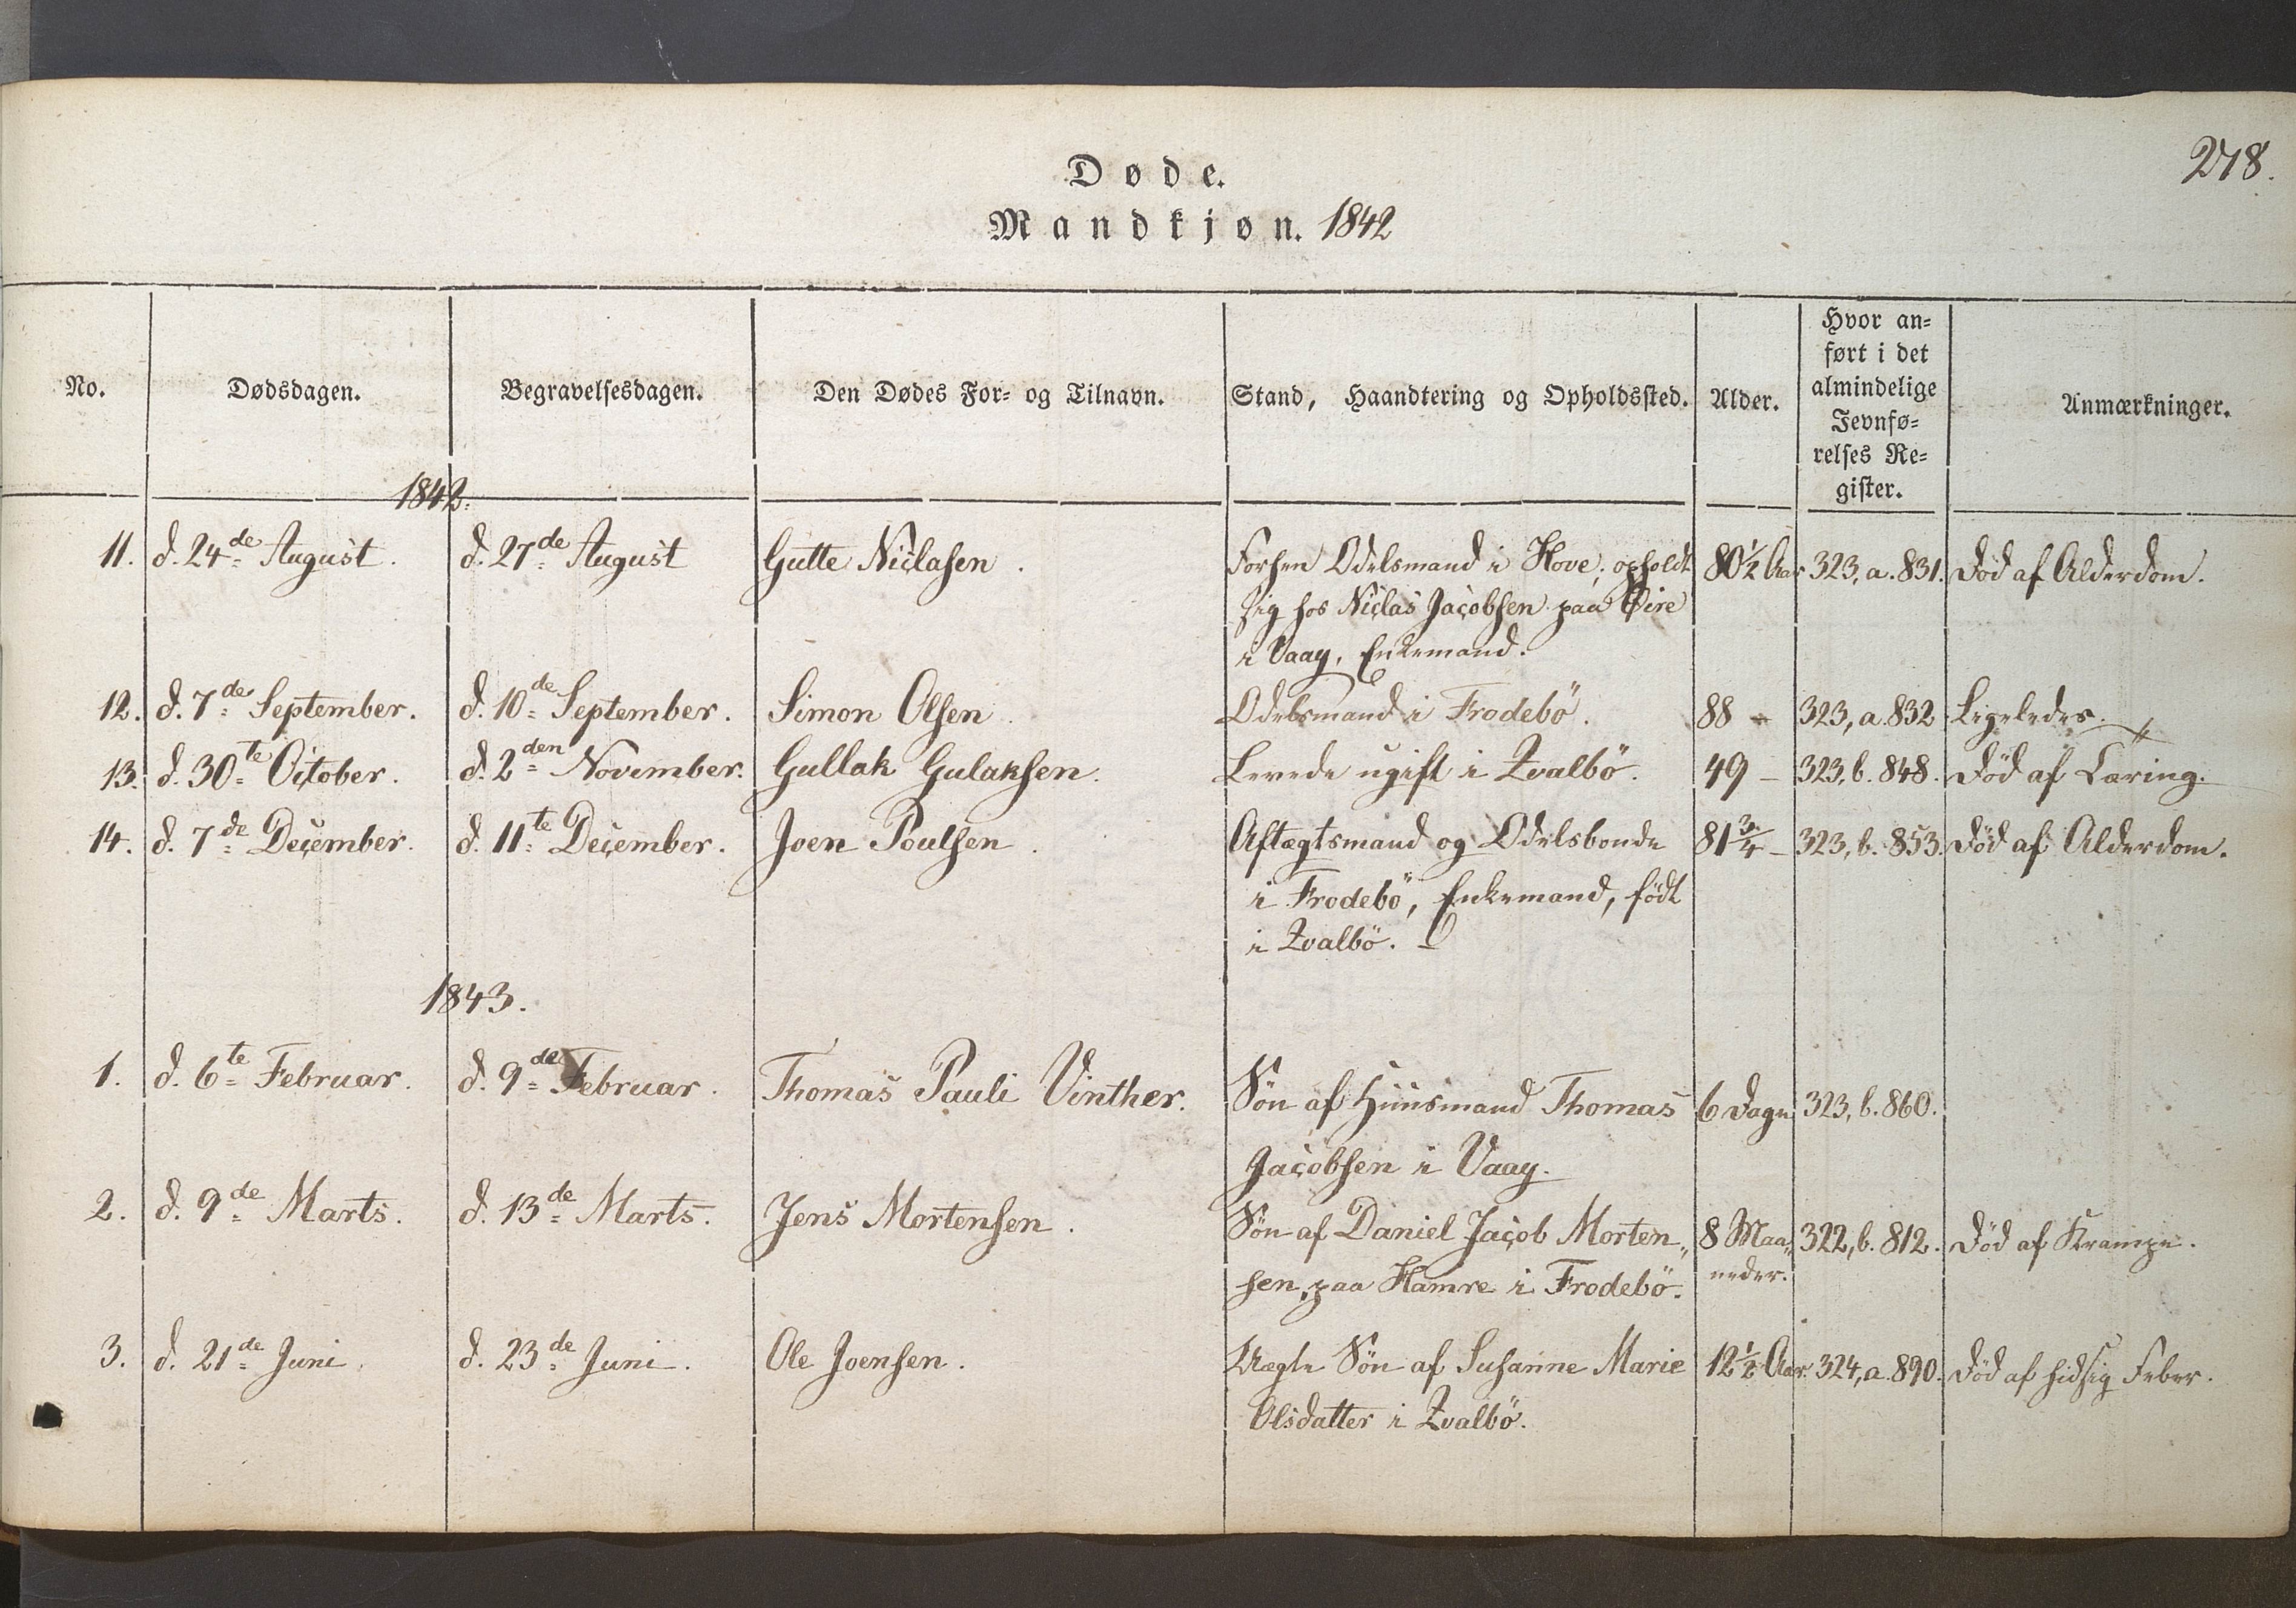 278.
Døde.
Mandkjøn. 1842
No.
Dødsdagen.
Begravelsesdagen.
Den Dødes For- og Tilnavn.
Stand, Haandtering og Opholdssted.
Alder.
Hvor an-
ført i det
almindelige
Jevnfø-
relses Re-
gister.
Anmærkninger.
1842.
11. d. 24de August. d. 27de August Gutte Niclasen. Forhen Odelsmand i Hove, opholdt 80½ Aar 323, a. 831. Död af Alderdom.
sig hos Niclas Jacobsen paa Øire
i Vaag, Enkemand.
12. d. 7de September. d. 10de September. Simon Olsen. Odelsmand i Frodebö. 88 - 323, a. 832 Ligeledes.
13. d. 30te October. d. 2den November. Gullak Gulaksen. Levede ugift i Qvalbö. 49 - 323, b. 848. Död af Tæring.
14. d. 7de December. d. 11te December. Joen Poulsen. Aftægtsmand og Odelsbonde 81¾ - 323, b. 853. Död af Alderdom.
i Frodebö, Enkemand, födt
i Qvalbö.
1843.
1. d. 6te Februar. d. 9de Februar. Thomas Pauli Vinther. Sön af Huusmand Thomas 6 Dage 323, b. 860.
Jacobsen i Vaag.
2. d. 9de Marts. d. 13de Marts. Jens Mortensen. Sön af Daniel Jacob Morten„ 8 Maa„ 322, b. 812. Död af Krampe.
sen, paa Hamre i Frodebö. neder.
3. d. 21de Juni. d. 23de Juni. Ole Joensen. Uægte Sön af Susanne Marie 12½ Aar. 324, a. 890. Död af hidsig Feber.
Olsdatter i Qvalbö.